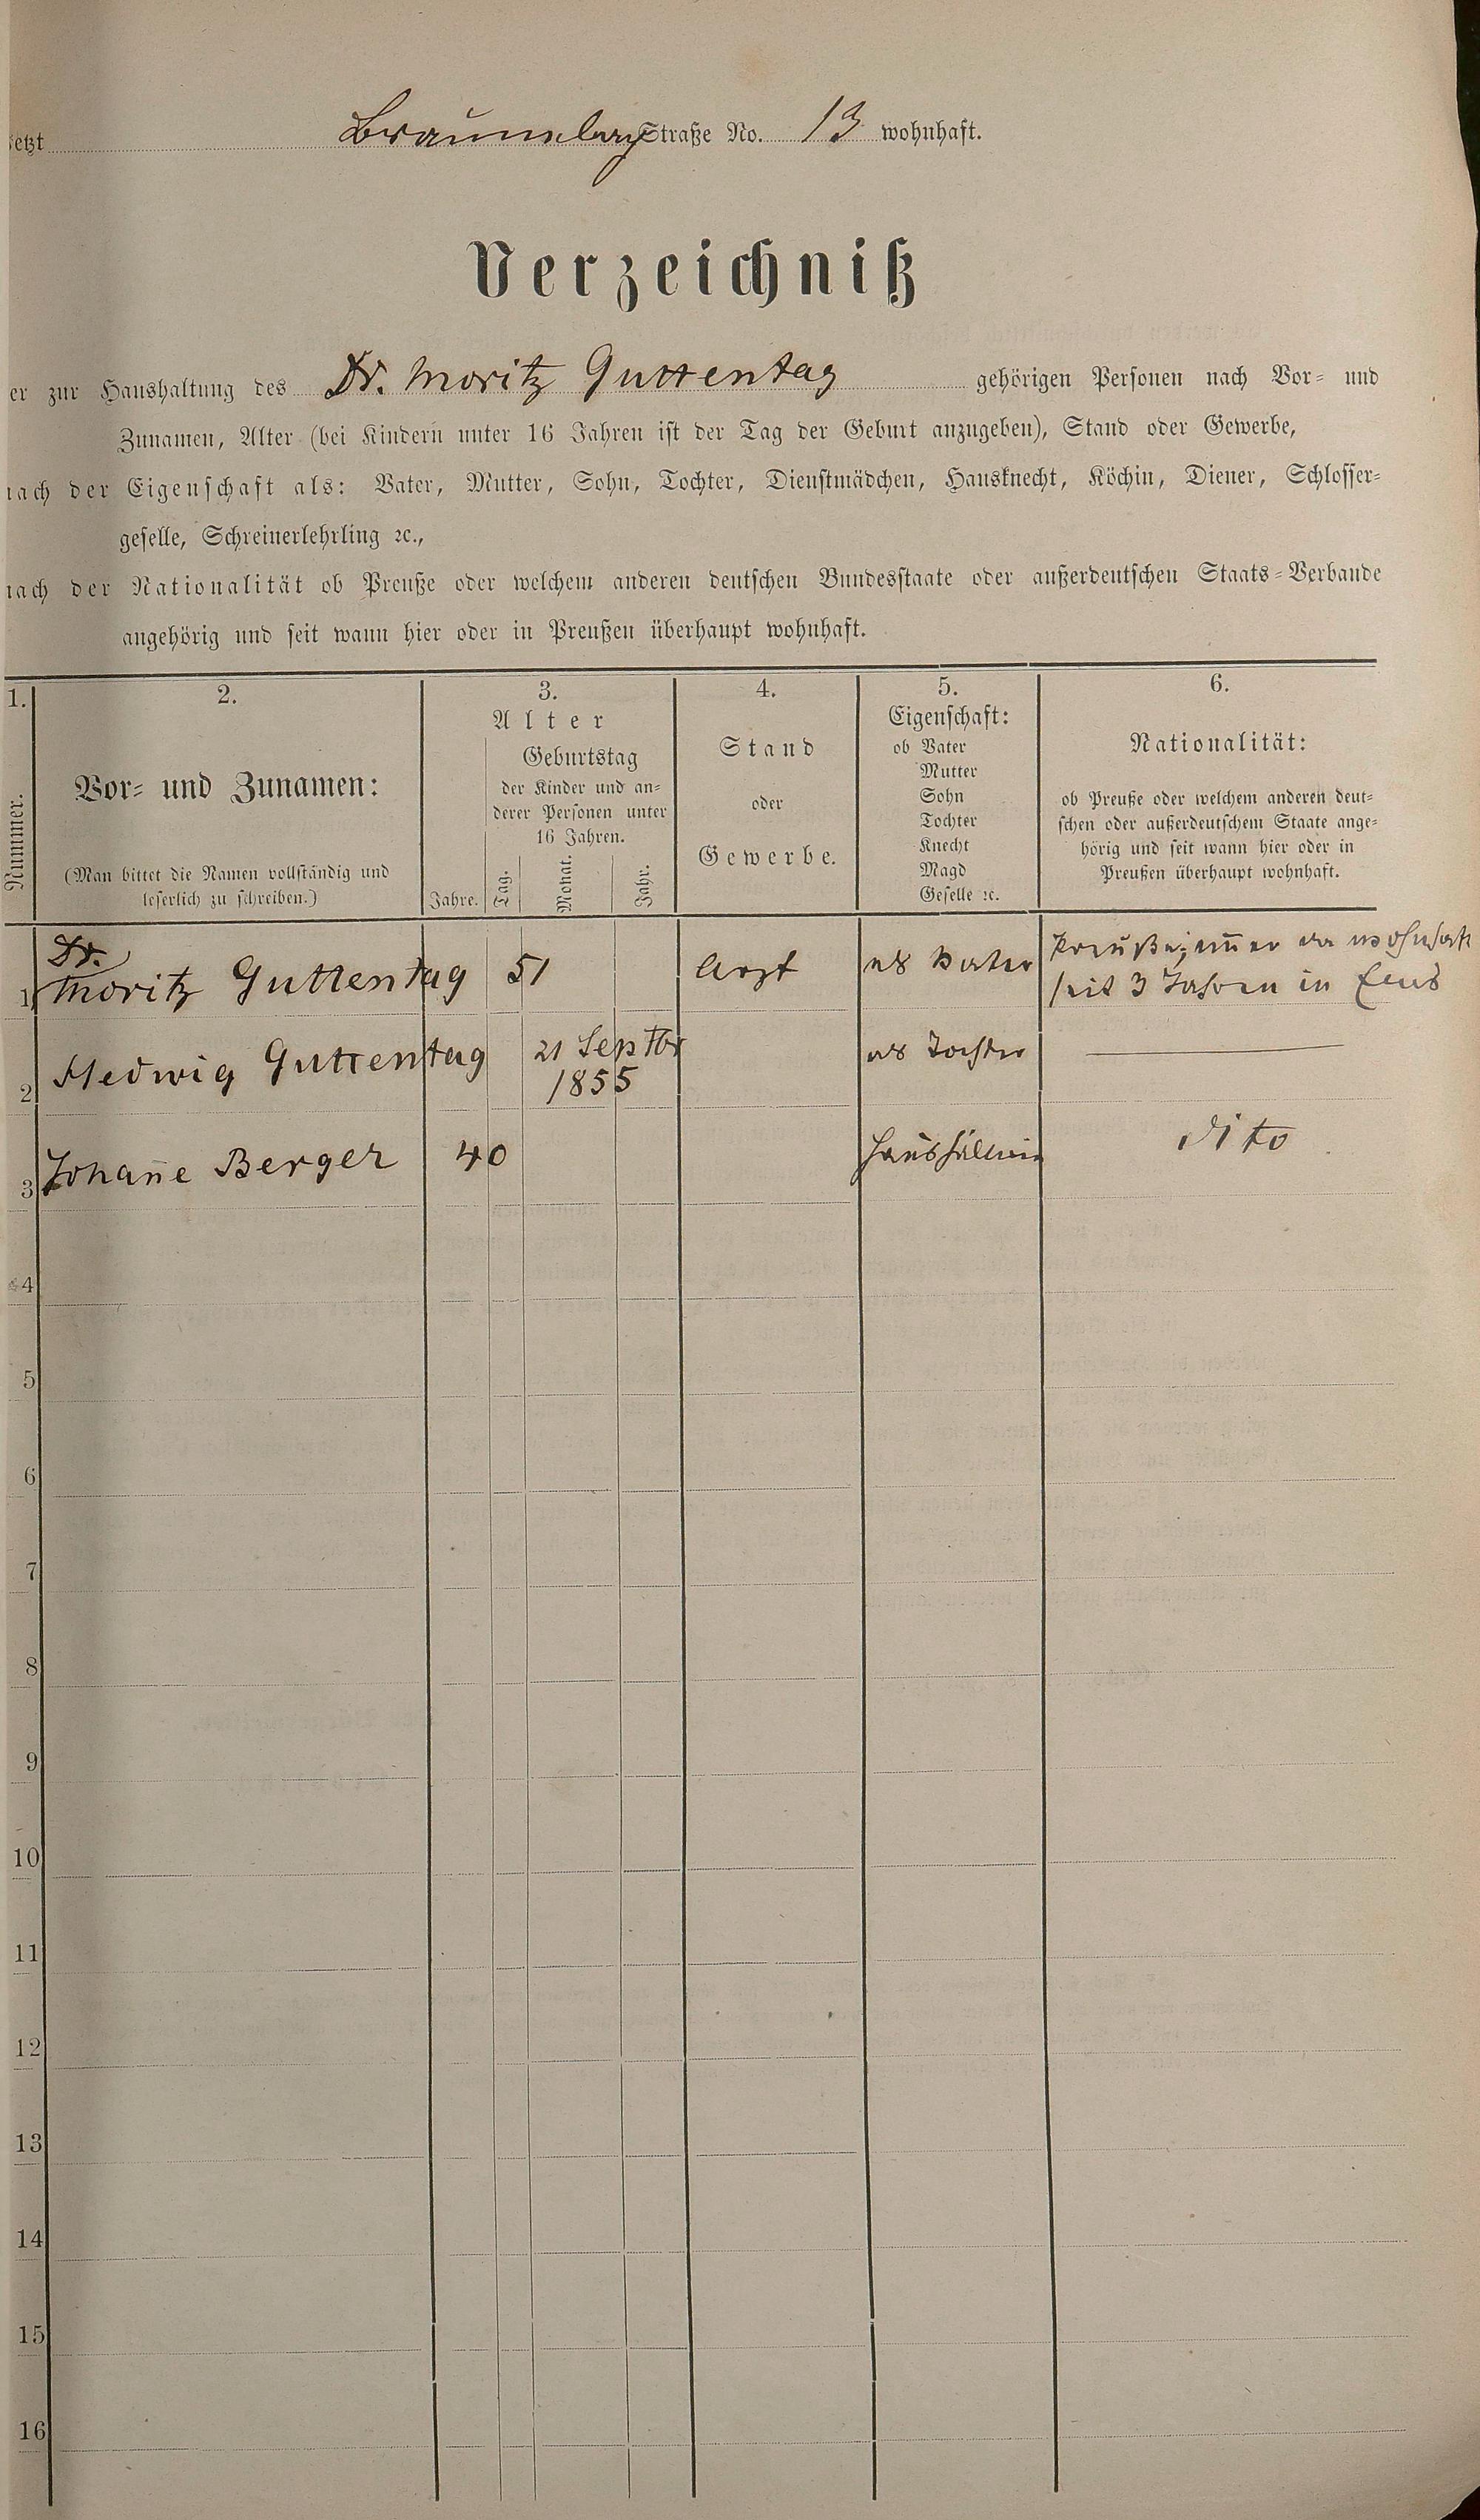 etzt Braunsberg Straße No. 13 wohnhaft.
Verzeichniß
er zur Haushaltung des Dr. Moritz Guttentag gehörigen Personen nach Vor- und
Zunamen, Alter (bei Kindern unter 16 Jahren ist der Tag der Geburt anzugeben), Stand oder Gewerbe,
nach der Eigenschaft als: Vater, Mutter, Sohn, Tochter, Dienstmädchen, Hausknecht, Köchin, Diener, Schlosser-
geselle, Schreinerlehrling ꝛc.,
nach der Nationalität ob Preuße oder welchem anderen deutschen Bundesstaate oder außerdeutschen Staats-Verbande
angehörig und seit wann hier oder in Preußen überhaupt wohnhaft.
1.
Nummer.
2.
Vor- und Zunamen:
(Man bittet die Namen vollständig und
leserlich zu schreiben.)
3.
Alter
Jahre.
Geburtstag
der Kinder und an-
derer Personen unter
16 Jahren.
Tag.
Monat.
Jahr.
4.
Stand
oder
Gewerbe.
5.
Eigenschaft:
ob Vater
Mutter
Sohn
Tochter
Knecht
Magd
Geselle ꝛc.
6.
Nationalität:
ob Preuße oder welchem anderen deut-
schen oder außerdeutschem Staate ange-
hörig und seit wann hier oder in
Preußen überhaupt wohnhaft.
1 Dr.
Moritz Guttentag 51 Arzt als Vater Preuße; im̅er da wohnhaft
seit 3 Jahren in Ems
2 Hedwig Guttentag 21 Septbr
1855 als Tochter
3 Johan̅e Berger 40 Haushälterin dito
4
5
6
7
8
9
10
11
12
13
14
15
16